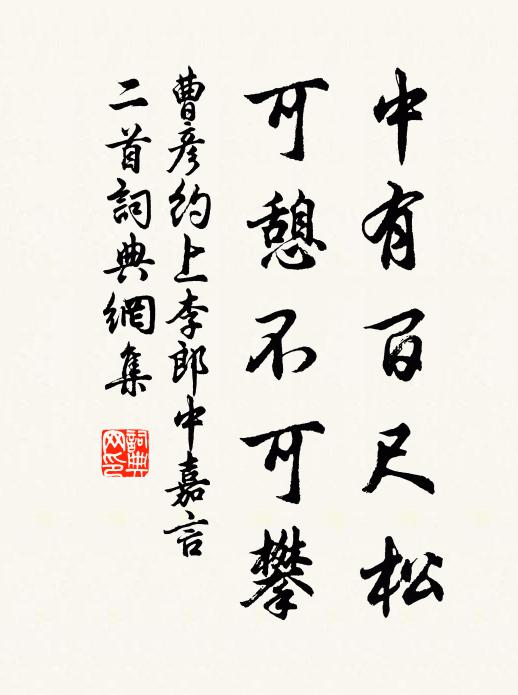 中有百尺松
可憩不可攀
曹彦約上李郎中嘉言
二首詞典網集
詞典
网印